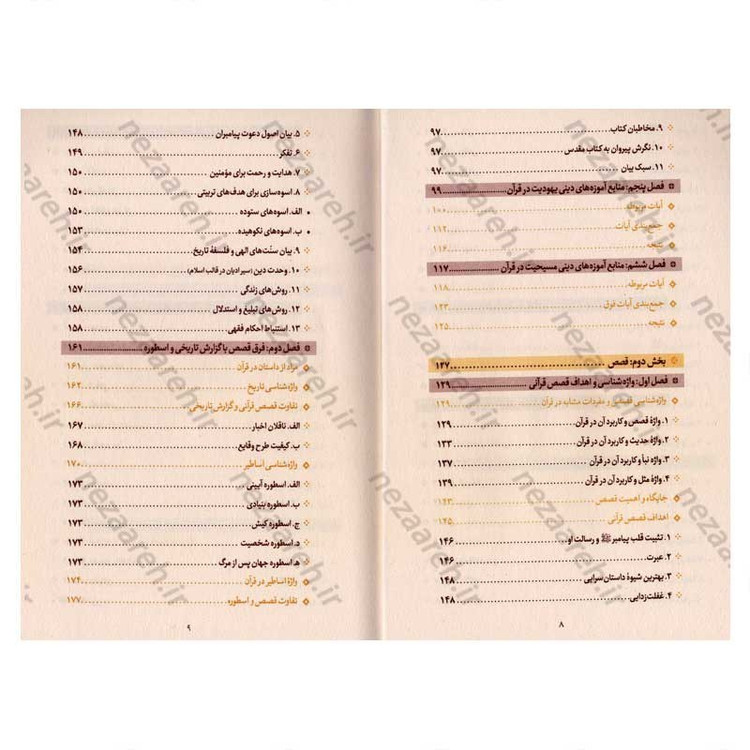 ۹. مخاطبان کتاب ۹۷
۱۰. نگرش پیروان به کتاب مقدس ۹۷
۱۱. سبک بیان ۹۷
فصل پنجم: منابع آموزه‌های دینی یهودیت در قرآن ۹۹
آیات مربوطه ۱۰۰
جمع‌بندی آیات ۱۱۲
نتیجه ۱۱۶
فصل ششم: منابع آموزه‌های دینی مسیحیت در قرآن ۱۱۷
آیات مربوطه ۱۱۸
جمع‌بندی آیات فوق ۱۲۳
نتیجه ۱۲۵
بخش دوم: قصص ۱۲۷
فصل اول: واژه‌شناسی و اهداف قصص قرآنی ۱۲۹
واژه‌شناسی قصص و مفردات مشابه در قرآن ۱۲۹
۱. واژهٔ قصص و کاربرد آن در قرآن ۱۲۹
۲. واژهٔ حدیث و کاربرد آن در قرآن ۱۳۳
۳. واژه نبأ و کاربرد آن در قرآن ۱۳۷
۴. واژهٔ مثل و کاربرد آن در قرآن ۱۳۹
جایگاه و اهمیت قصص ۱۴۳
اهداف قصص قرآنی ۱۴۵
۱. تثبیت قلب پیامبر ﷺ و رسالت او ۱۴۶
۲. عبرت ۱۴۶
۳. بهترین شیوهٔ داستان سرایی ۱۴۸
۴. غفلت‌زدایی ۱۴۸
۸
۵. بیان اصول دعوت پیامبران ۱۴۸
۶. تفکر ۱۴۹
۷. هدایت و رحمت برای مؤمنین ۱۵۰
۸. اسوه‌سازی برای هدف‌های تربیتی ۱۵۰
الف. اسوه‌های ستوده ۱۵۰
ب. اسوه‌های نکوهیده ۱۵۳
۹. بیان سنّت‌های الهی و فلسفهٔ تاریخ ۱۵۴
۱۰. وحدت دین (سیر ادیان در قالب اسلام) ۱۵۶
۱۱. روش‌های زندگی ۱۵۷
۱۲. روش‌های تبلیغ و استدلال ۱۵۸
۱۳. استنباط احکام فقهی ۱۵۸
فصل دوم: فرق قصص با گزارش تاریخی و اسطوره ۱۶۱
مراد از داستان در قرآن ۱۶۱
واژه‌شناسی تاریخ ۱۶۲
تفاوت قصص قرآنی و گزارش تاریخی ۱۶۶
الف. ناقلان اخبار ۱۶۷
ب. کیفیت طرح وقایع ۱۶۸
واژه‌شناسی اساطیر ۱۷۰
الف. اسطوره آیینی ۱۷۳
ب. اسطوره بنیادی ۱۷۳
ج. اسطوره کیش ۱۷۳
د. اسطوره شخصیت ۱۷۳
ه. اسطوره جهان پس از مرگ ۱۷۳
واژهٔ اساطیر در قرآن ۱۷۴
تفاوت قصص و اسطوره ۱۷۷
۹
nezaareh.ir